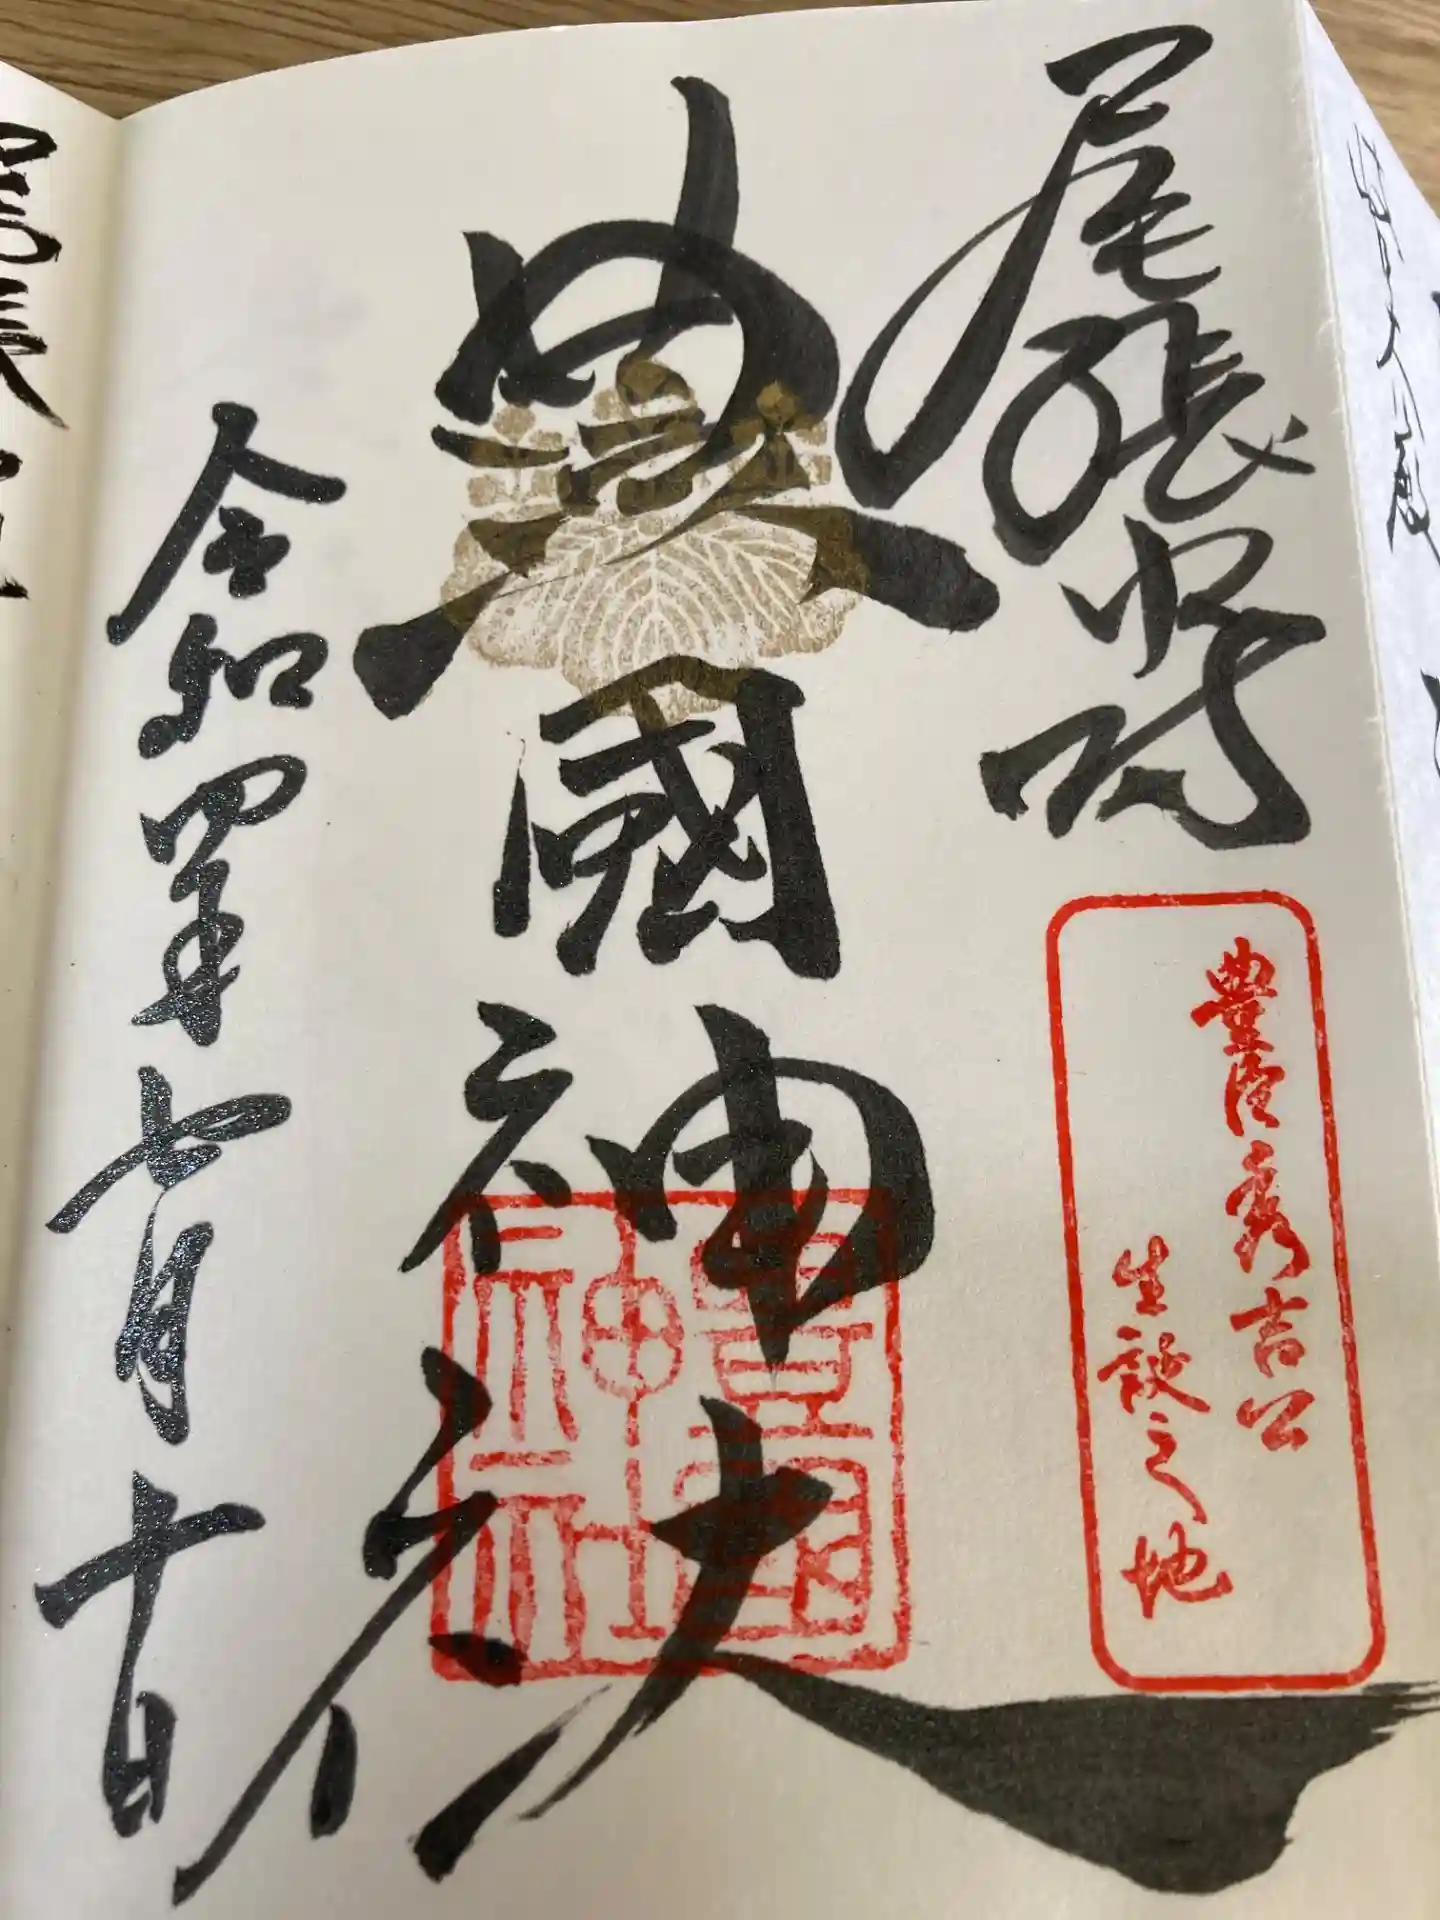 尾張中村
豊臣秀吉公
生誕之地
豊國神社
豊國神社
令和四年七月十日
尾張